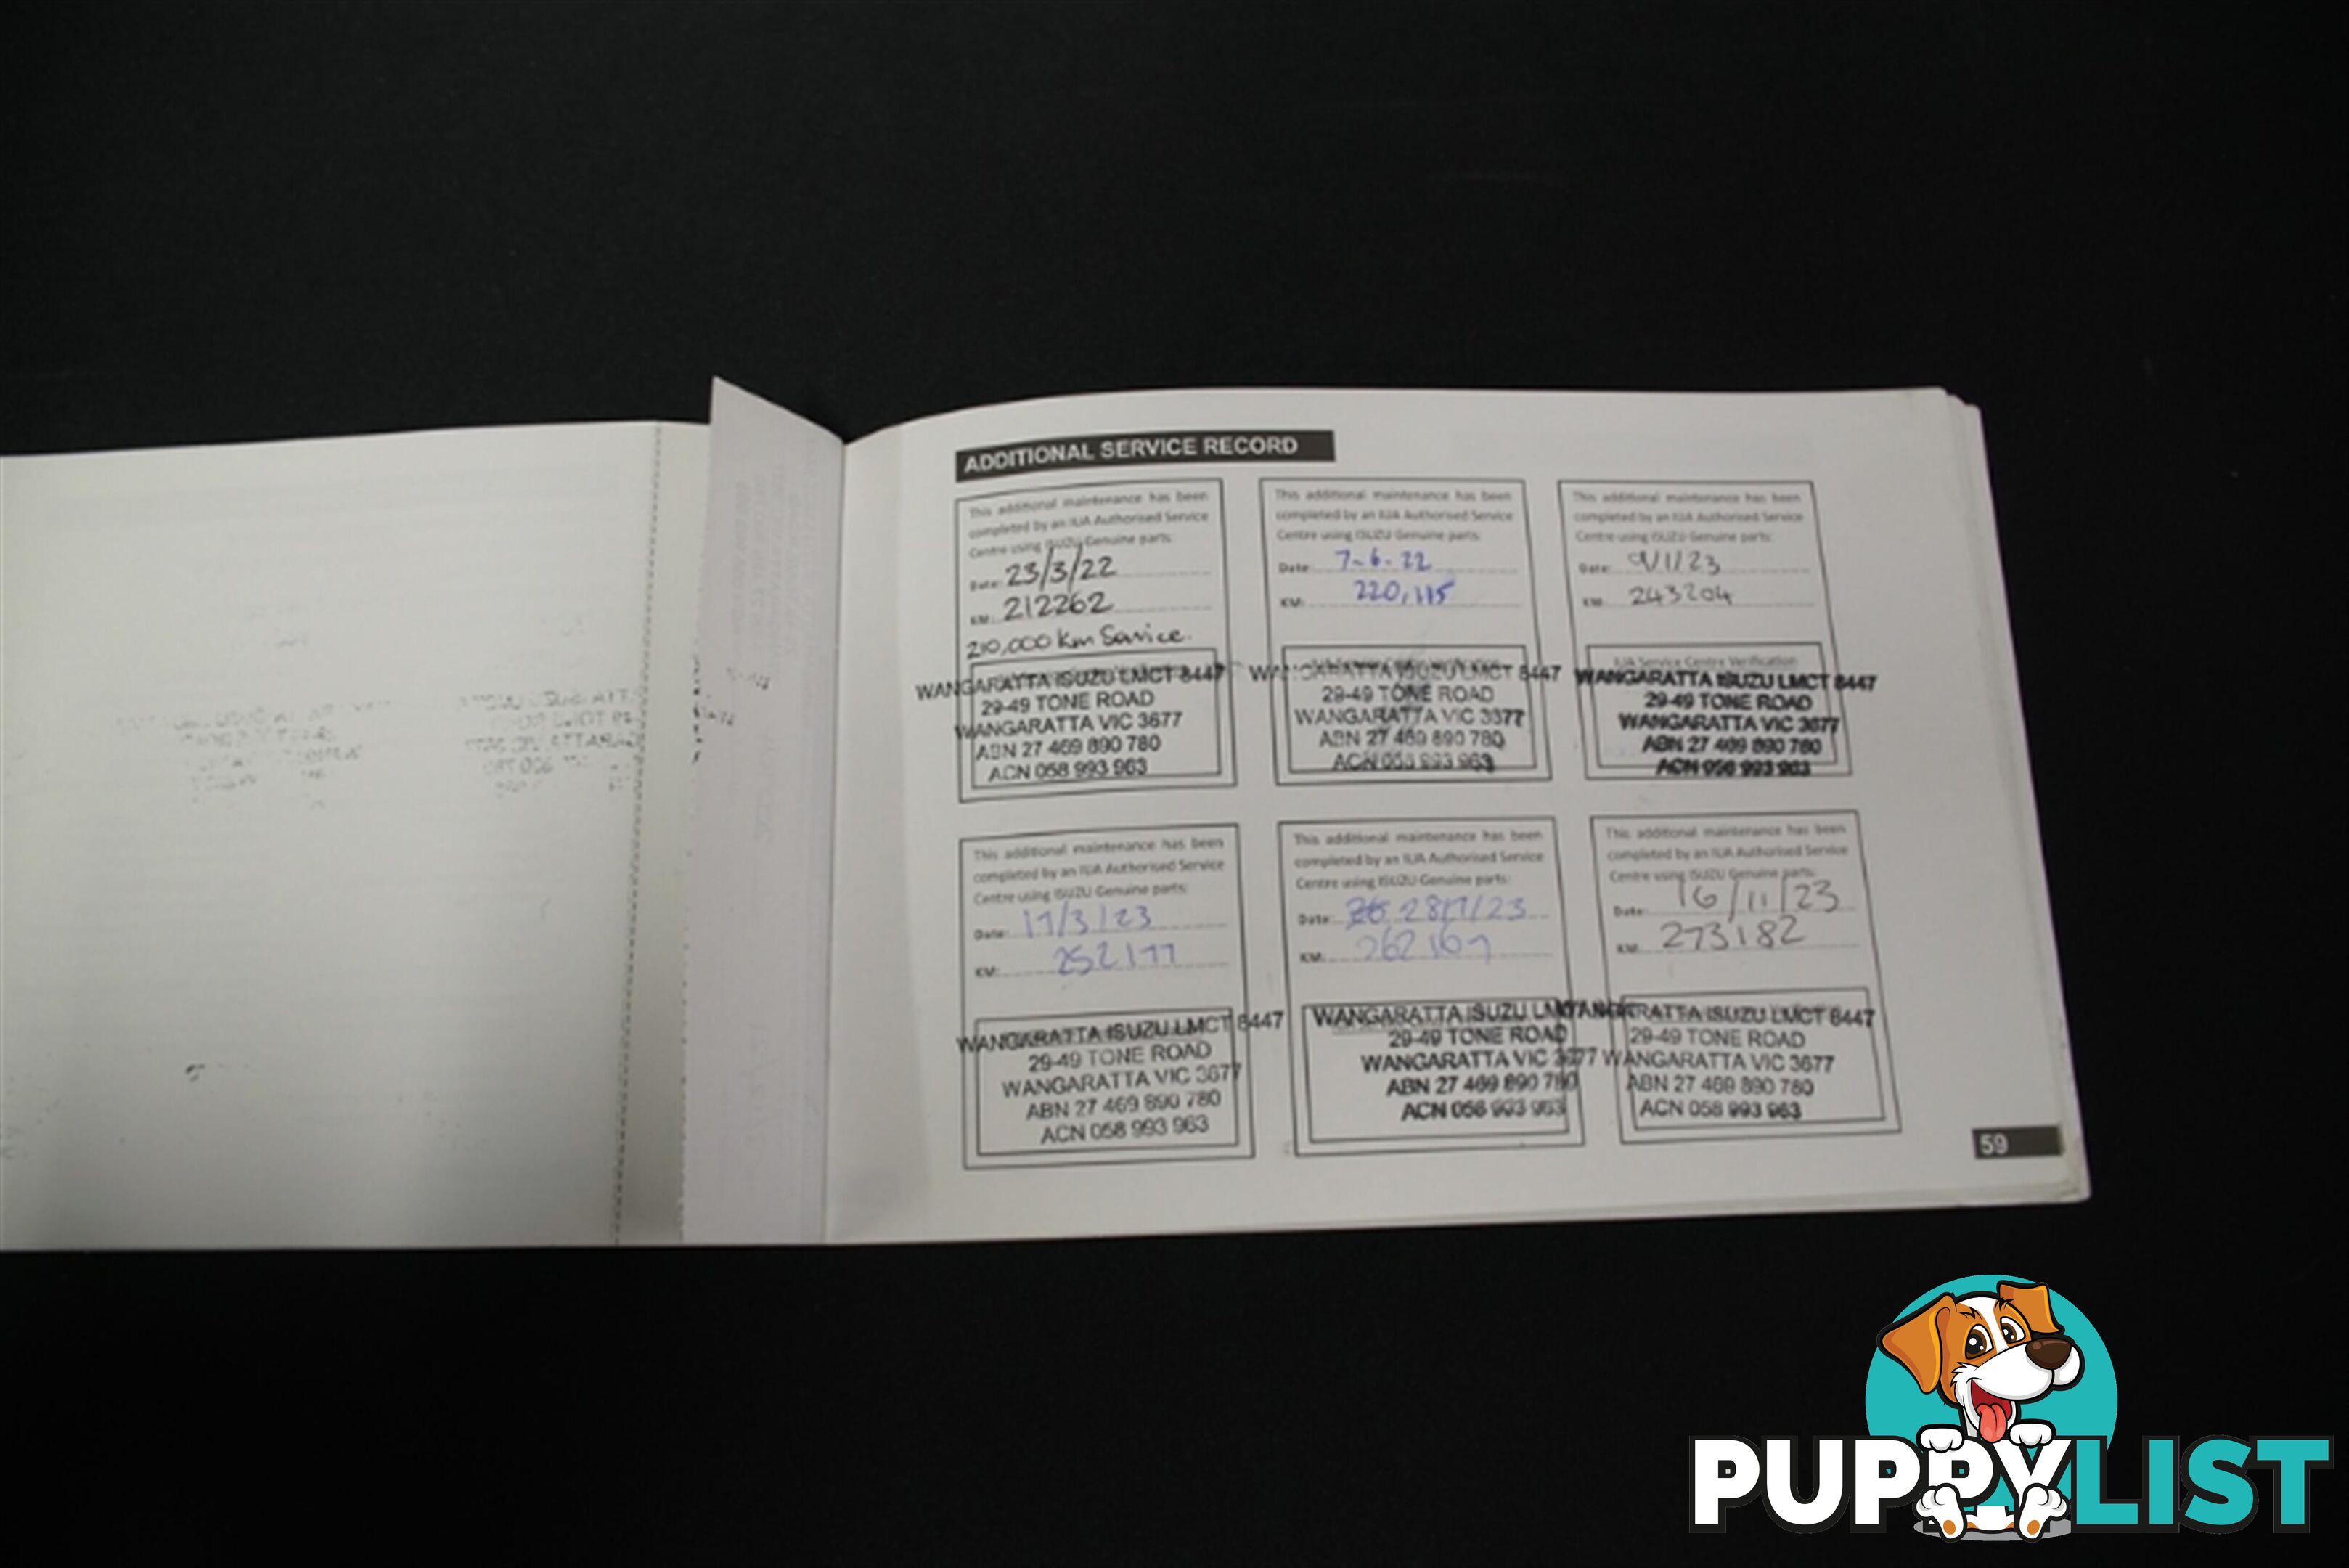 ADDITIONAL SERVICE RECORD
This additional maintenance has been
completed by an IUA Authorised Service
Centre using ISUZU Genuine parts:
Date: 23/3/22
KM: 212262
210,000 Km Service.
WANGARATTA ISUZU LMCT 8447
29-49 TONE ROAD
WANGARATTA VIC 3677
ABN 27 469 890 780
ACN 058 993 963
This additional maintenance has been
completed by an IUA Authorised Service
Centre using ISUZU Genuine parts:
Date: 7-6-22
KM: 220,115
WANGARATTA ISUZU LMCT 8447
29-49 TONE ROAD
WANGARATTA VIC 3677
ABN 27 469 890 780
ACN 058 993 963
This additional maintenance has been
completed by an IUA Authorised Service
Centre using ISUZU Genuine parts:
Date: 9/1/23
KM: 243204
IUA Service Centre Verification
WANGARATTA ISUZU LMCT 8447
29-49 TONE ROAD
WANGARATTA VIC 3677
ABN 27 469 890 780
ACN 058 993 963
This additional maintenance has been
completed by an IUA Authorised Service
Centre using ISUZU Genuine parts:
Date: 17/3/23
KM: 252177
WANGARATTA ISUZU LMCT 8447
29-49 TONE ROAD
WANGARATTA VIC 3677
ABN 27 469 890 780
ACN 058 993 963
This additional maintenance has been
completed by an IUA Authorised Service
Centre using ISUZU Genuine parts:
Date: 28/7/23
KM: 262167
WANGARATTA ISUZU
29-49 TONE ROAD
WANGARATTA VIC 3677
ABN 27 469 890 780
ACN 058 993 963
This additional maintenance has been
completed by an IUA Authorised Service
Centre using ISUZU Genuine parts:
Date: 16/11/23
KM: 273182
WANGARATTA ISUZU LMCT 8447
29-49 TONE ROAD
WANGARATTA VIC 3677
ABN 27 469 890 780
ACN 058 993 963
59
PUPPYLIST